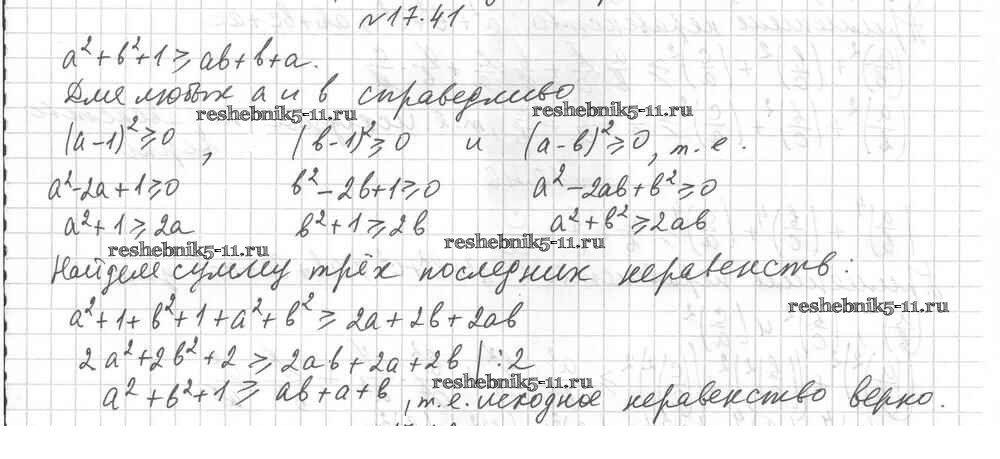 №17.41
a²+b²+1 ⩾ ab+b+a.
Для любых a и b справедливо
reshebnik5-11.ru reshebnik5-11.ru
(a-1)²⩾0, (b-1)²⩾0 и (a-b)²⩾0, т.е.
a²-2a+1⩾0 b²-2b+1⩾0 a²-2ab+b²⩾0
a²+1⩾2a b²+1⩾2b a²+b²⩾2ab
reshebnik5-11.ru reshebnik5-11.ru
Найдем сумму трёх последних неравенств:
reshebnik5-11.ru
a²+1+b²+1+a²+b² ⩾ 2a+2b+2ab
2a²+2b²+2 ⩾ 2ab+2a+2b |:2
reshebnik5-11.ru
a²+b²+1 ⩾ ab+a+b, т.е. исходное неравенство верно.